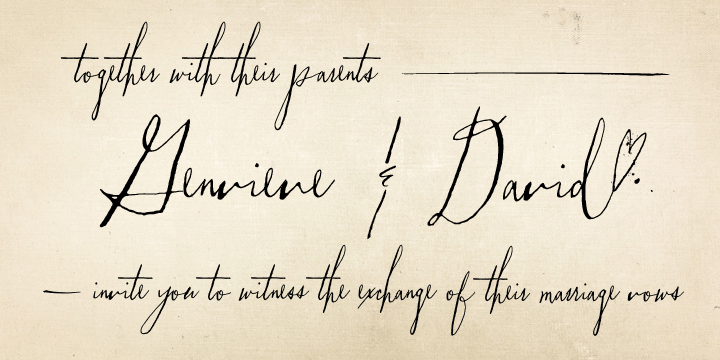 together with their parents
Genvieve & David
invite you to witness the exchange of their marriage vows